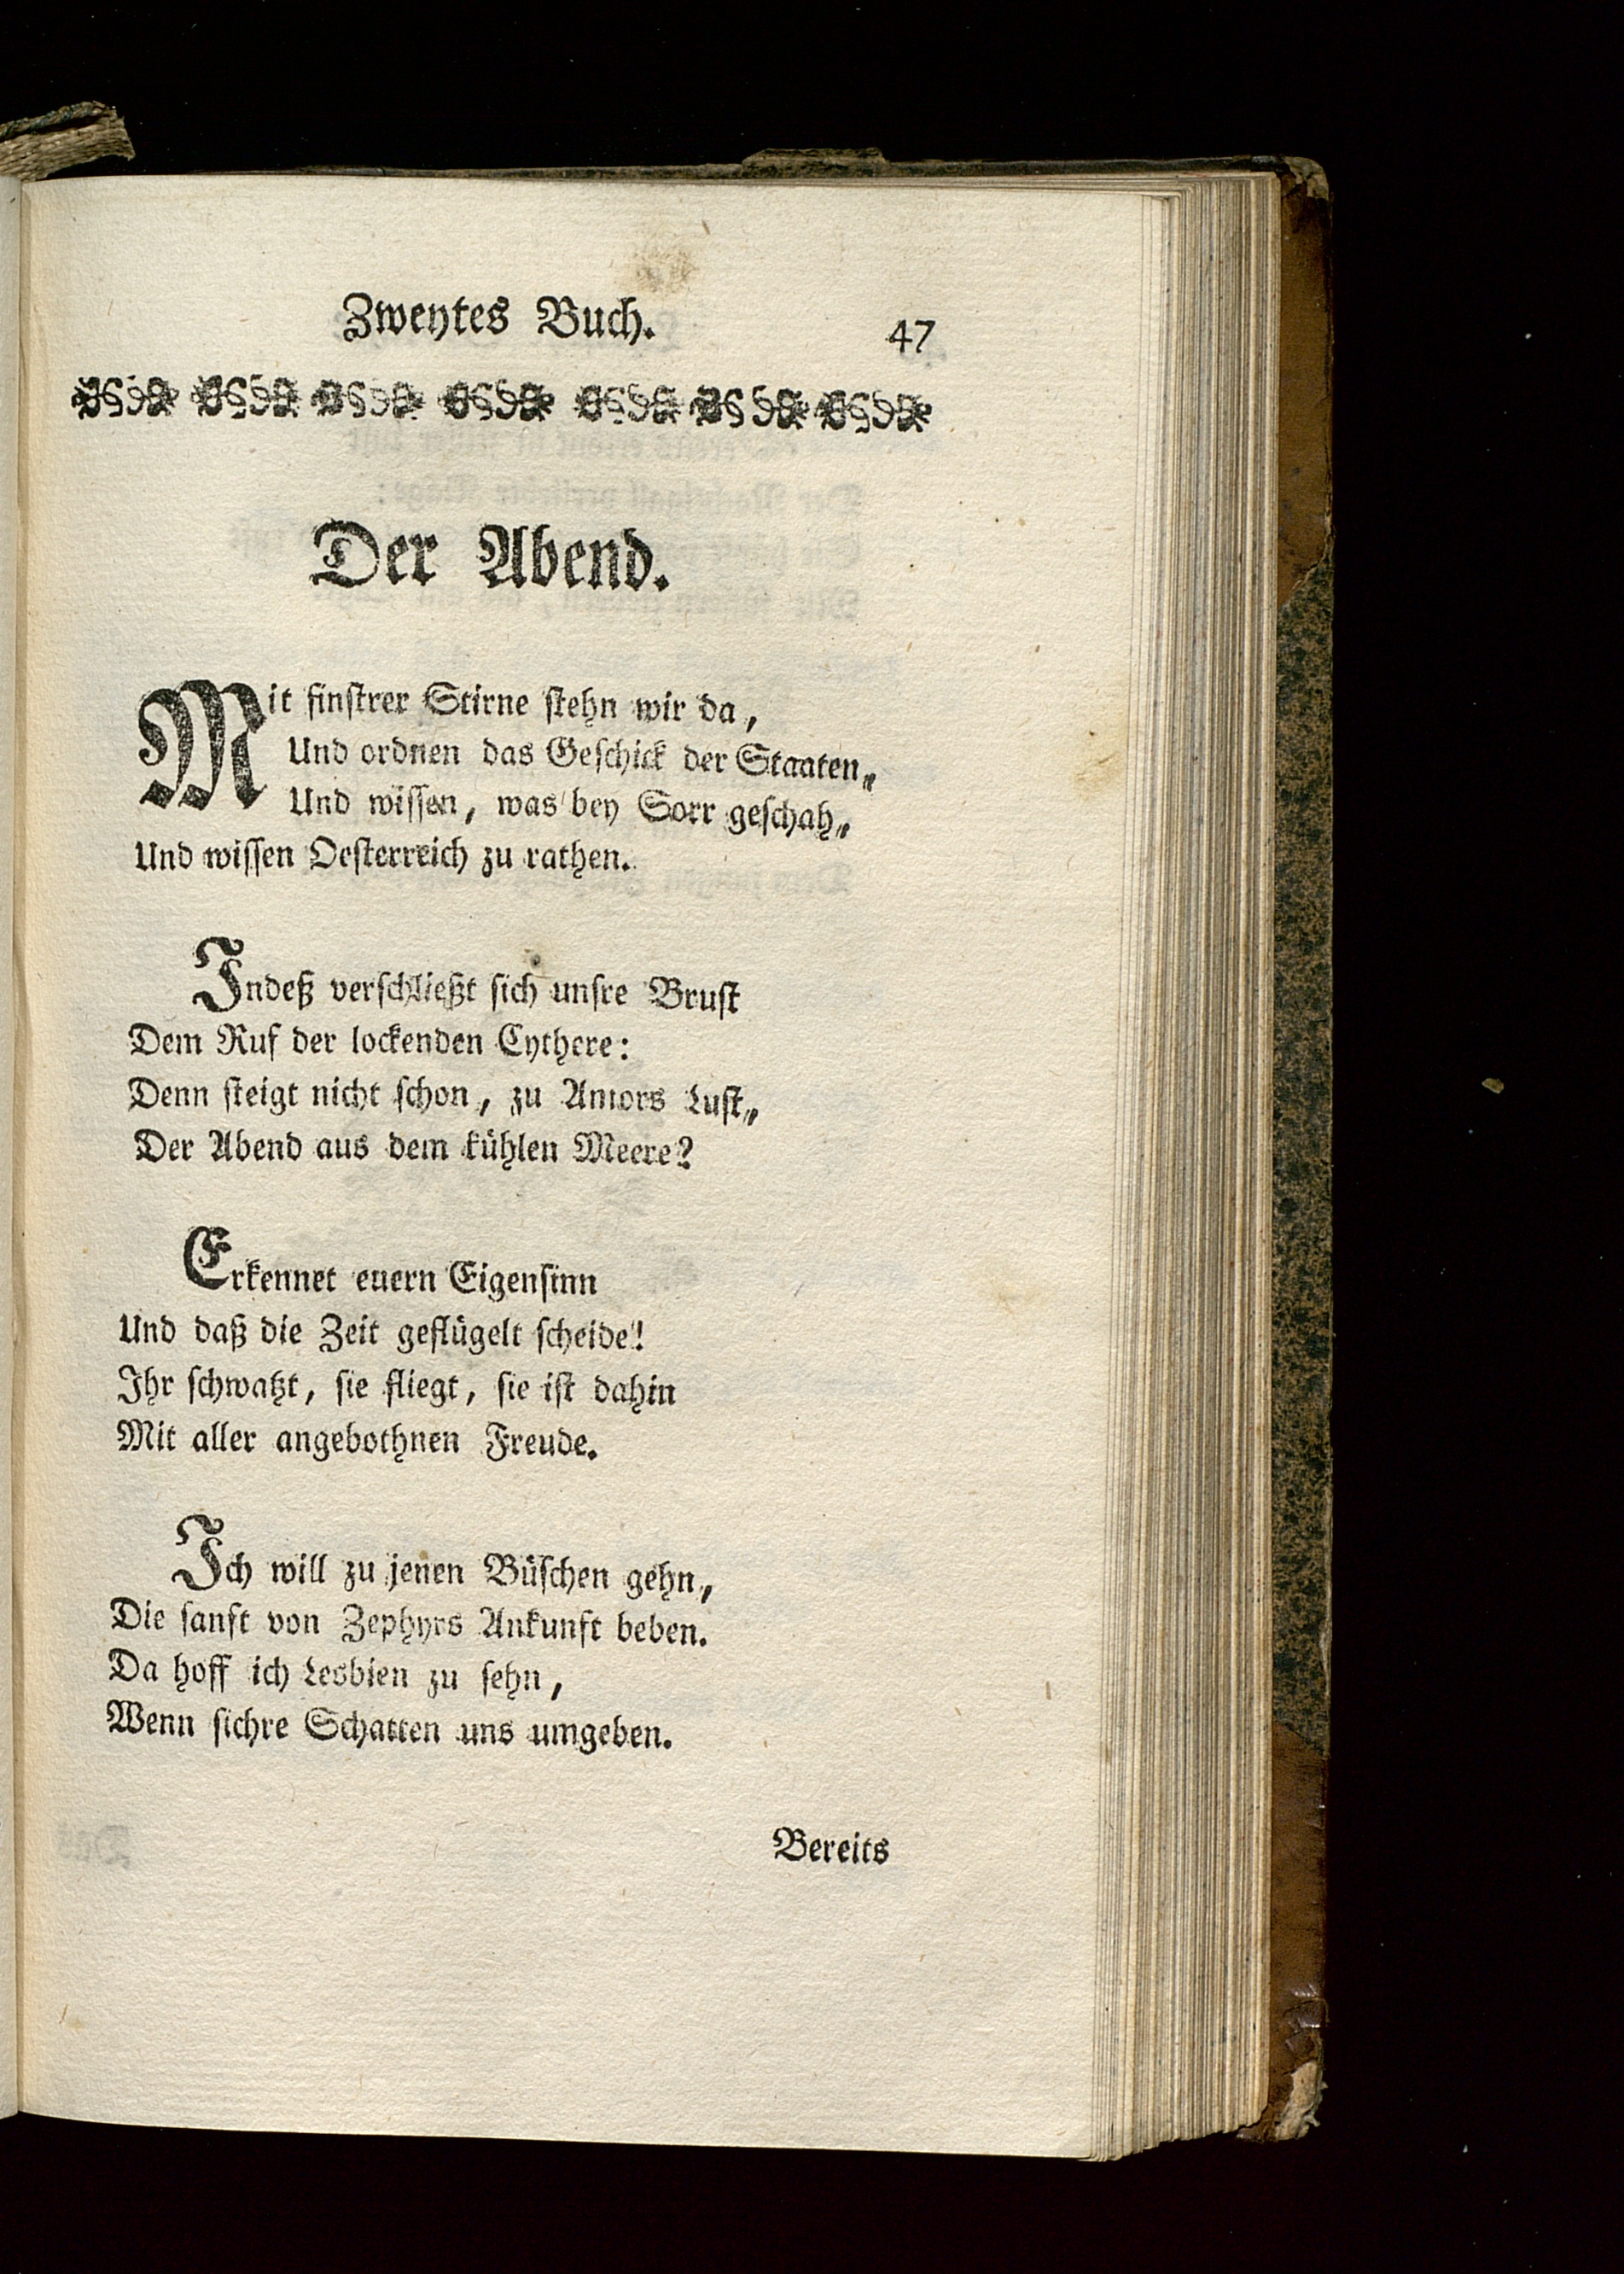 Zweytes Buch. 47
Der Abend.
Mit finſtrer Stirne ſtehn wir da,
Und ordnen das Geſchick der Staaten,
Und wiſſen, was bey Sorr geſchah,
Und wiſſen Oeſterreich zu rathen.
Indeß verſchließt ſich unſre Bruſt
Dem Ruf der lockenden Cythere:
Denn ſteigt nicht ſchon, zu Amors Luſt,
Der Abend aus dem kühlen Meere?
Erkennet euern Eigenſinn
Und daß die Zeit geflügelt ſcheide!
Ihr ſchwatzt, ſie fliegt, ſie iſt dahin
Mit aller angebothnen Freude.
Ich will zu jenen Büſchen gehn,
Die ſanft von Zephyrs Ankunft beben.
Da hoff ich Lesbien zu ſehn,
Wenn ſichre Schatten uns umgeben.
Bereits